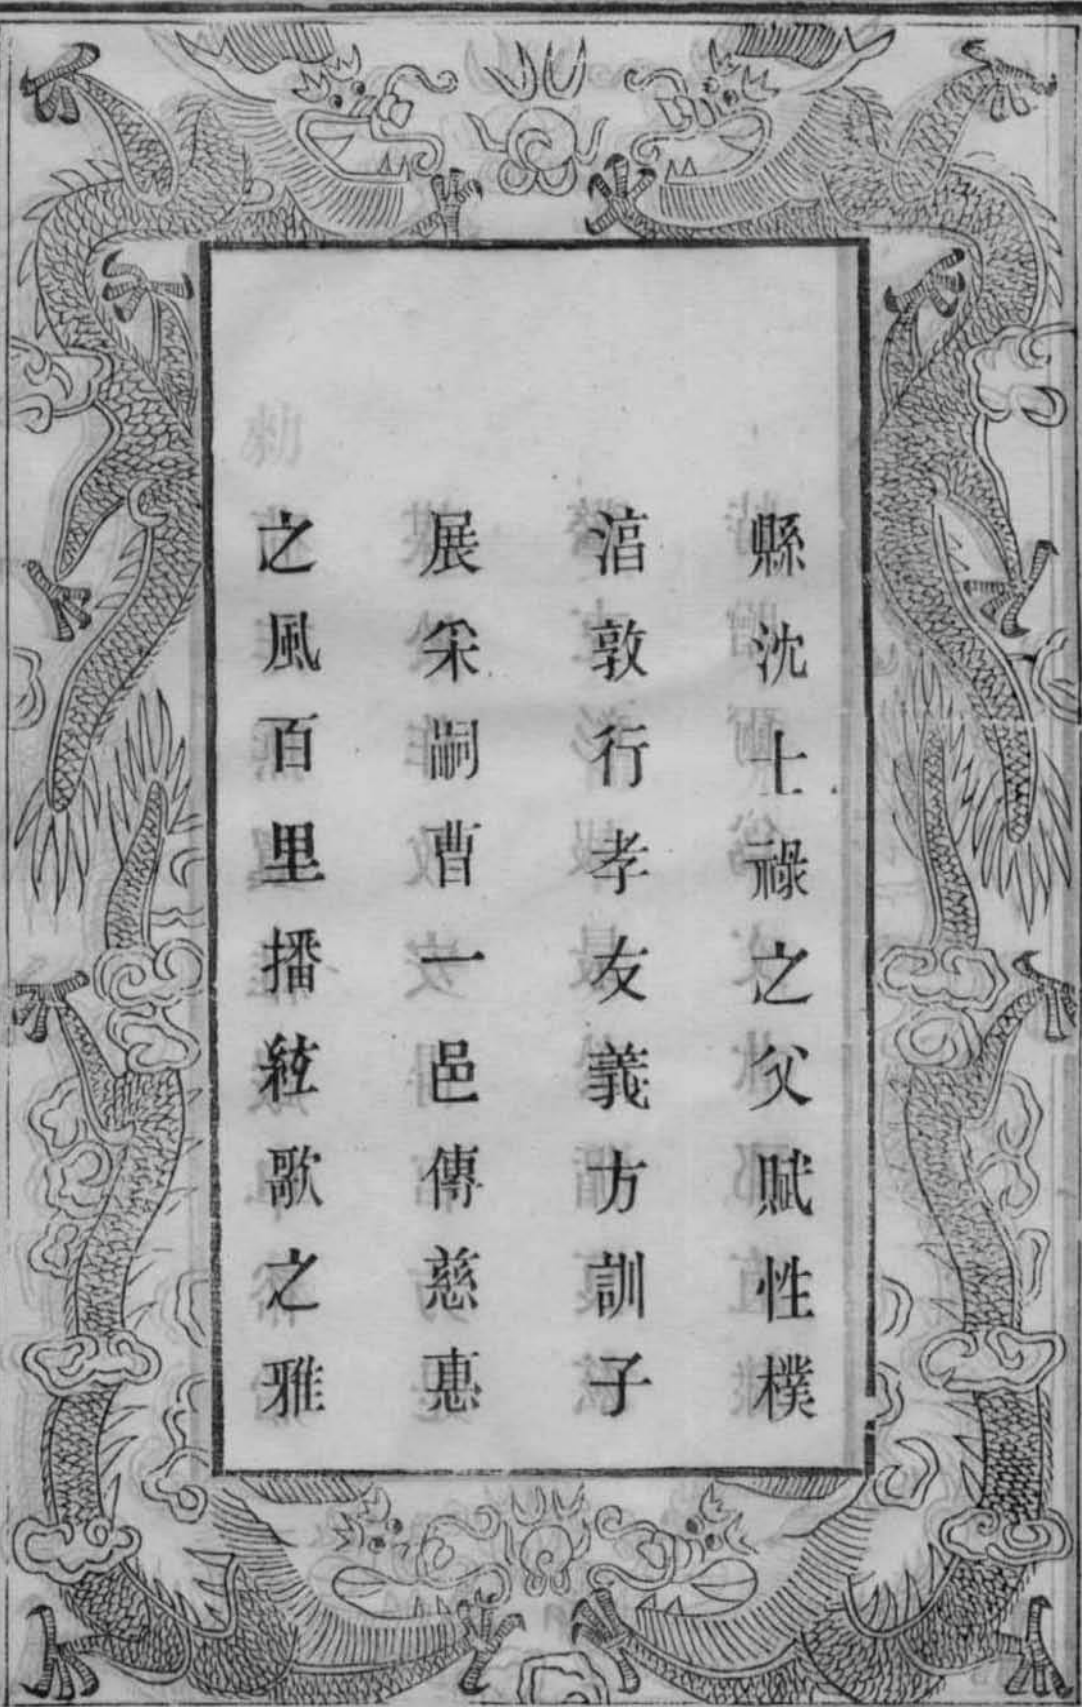 縣沈士祿之父賦性樸
湻敦行孝友義方訓子
展采嗣曹一邑傳慈惠
之風百里播絃歌之雅